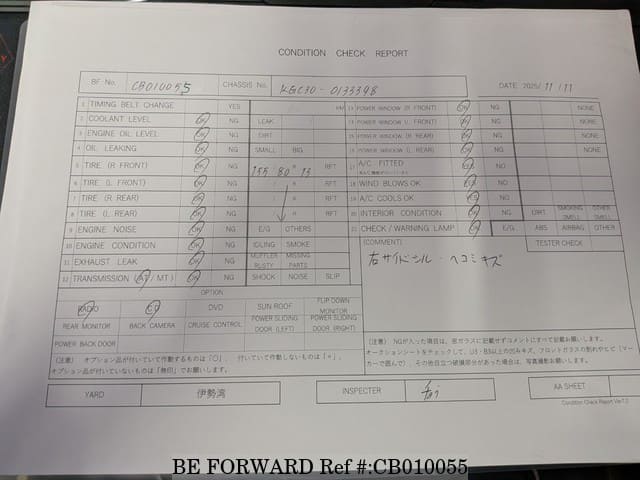 CONDITION CHECK REPORT
BF No. CB010055 CHASSIS No. KGC30-0133398 DATE 2025/11/11
1 TIMING BELT CHANGE YES KM
2 COOLANT LEVEL OK NG LEAK
3 ENGINE OIL LEVEL OK NG DIRT
4 OIL LEAKING OK NG SMALL BIG
5 TIRE (R FRONT) OK NG 155 80 R 13 RFT
6 TIRE (L FRONT) OK NG R RFT
7 TIRE (R REAR) OK NG R RFT
8 TIRE (L REAR) OK NG R RFT
9 ENGINE NOISE OK NG E/G OTHERS
10 ENGINE CONDITION OK NG IDLING SMOKE
11 EXHAUST LEAK OK NG MUFFLER RUSTY MISSING PARTS
12 TRANSMISSION (AT / MT) OK NG SHOCK NOISE SLIP
13 POWER WINDOW (R FRONT) OK NG NONE
14 POWER WINDOW (L FRONT) OK NG NONE
15 POWER WINDOW (R REAR) OK NG NONE
16 POWER WINDOW (L REAR) OK NG NONE
17 A/C FITTED YES NO
18 WIND BLOWS OK YES NO
19 A/C COOLS OK YES NO
20 INTERIOR CONDITION OK NG DIRT SMOKING SMELL OTHER SMELL
21 CHECK / WARNING LAMP OK NG E/G ABS AIRBAG OTHER
(COMMENT) TESTER CHECK
右サイドシル・ヘコミキズ
OPTION
RADIO CD DVD SUN ROOF FLIP DOWN MONITOR
REAR MONITOR BACK CAMERA CRUISE CONTROL POWER SLIDING DOOR (LEFT) POWER SLIDING DOOR (RIGHT)
POWER BACK DOOR
(注意) オプション品が付いていて作動するものは「○」、付いていて作動しないものは「×」、
オプション品が付いていないものは「無印」でお願いします。
(注意) NGが入った項目は、密ガラスに記載せずコメントにすべて記載お願いします。
オークションシートをチェックして、U3・B3以上の凹みキズ、フロントガラスの割れやヒビ(マー
カーで囲んで)、その他目立つ破損部分があった場合は、写真撮影お願いします。
YARD 伊勢湾 INSPECTER AA SHEET
Condition Check Report Ver7.2
BE FORWARD Ref #:CB010055